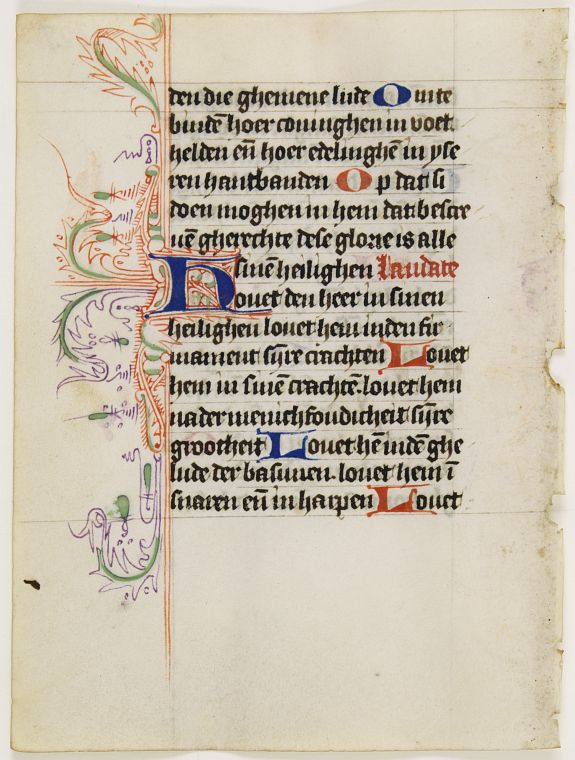 den die ghemene lude Om te
bindē hoer coninghen in voet
helden eñ hoer edelinghē in yse
ren hantbanden Op dat si
doen moghen in hem dat bescre
uē gherechte dese glorie is alle
sinē heilighen Laudate
Louet den heer in sinen
heilighen louet hem in den fir
mament sijre crachten Louet
hem in sinē crachtē. louet hem
na der menichfoudicheit sijre
grootheit Louet hē in dē ghe
lude der basunen. louet hem ī
snaren eñ in harpen Louet